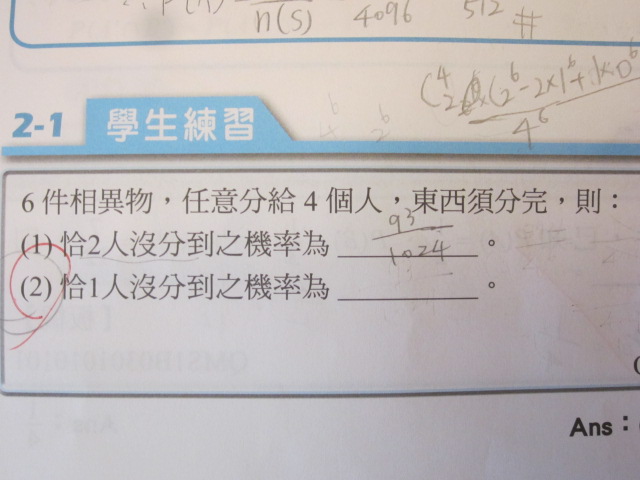 n(s) 4096 512 #
(4 2)(2^6-2×1^6+1×0^6
4^6
2-1 學生練習
6 件相異物，任意分給 4 個人，東西須分完，則：
93
(1) 恰2人沒分到之機率為 ________ 。
1024
(2) 恰1人沒分到之機率為 ________ 。
Ans：